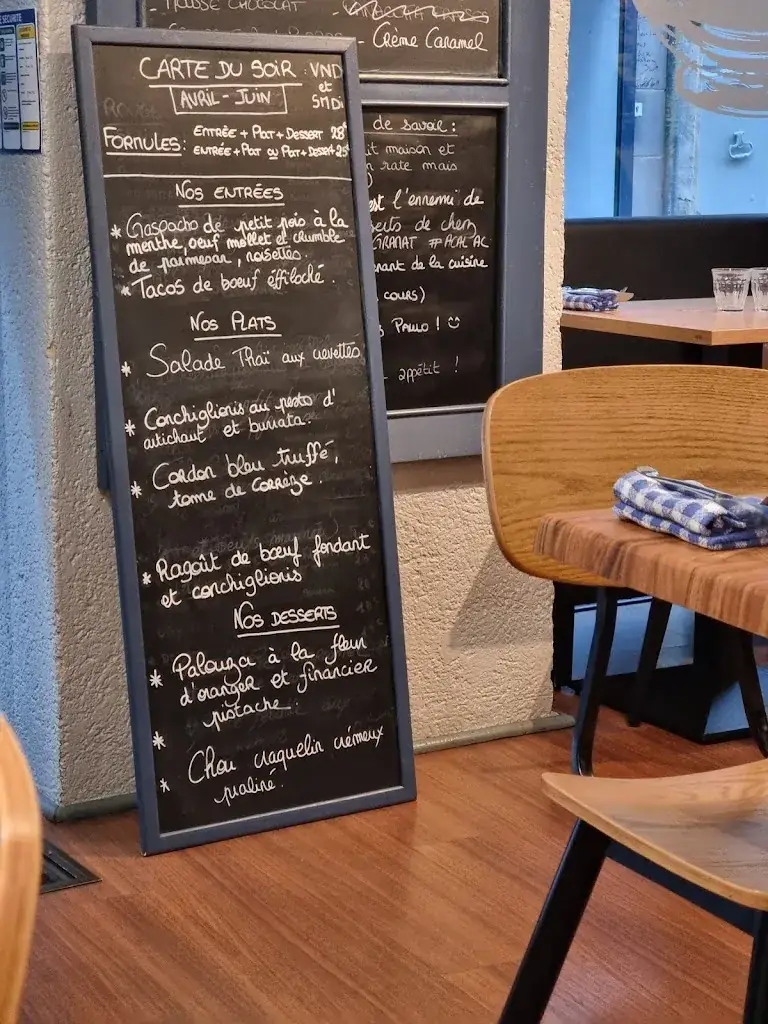 CARTE DU SOIR : VND
et
SMDi
AVRIL - JUIN
FORMULES : ENTRÉE + PLAT + DESSERT 28€
ENTRÉE + PLAT OU PLAT + DESSERT 25€
NOS ENTRÉES
* Gaspacho de petit pois à la
menthe, oeuf mollet et crumble
de parmesan, noisettes.
* Tacos de boeuf éffiloché.
NOS PLATS
* Salade Thaï aux crevettes
* Conchiglionis au pesto d'
artichaut et burrata.
* Cordon bleu truffé,
tome de Corrèze.
* Ragoût de boeuf fondant
et conchiglionis
NOS DESSERTS
* Palouza à la fleur
d'oranger et financier
pistache.
*
* Chou craquelin crémeux
praliné.
MOUSSE CHOCOLAT
- Crème Caramel
de savoir :
it maison et
n rate mais
est l'ennemi de
serts de chez
GRANAT #ACALAC
enant de la cuisine
cours)
PAULO ! ☺
appétit !